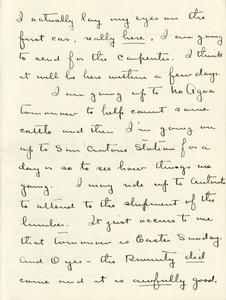 I actually lay my eyes on the
first car, really here, I am going
to send for the Carpenter. I think
it will be here within a few days.
I am going up to Agua
tomorrow to help count some
cattle and then I'm going on
up to San Antone Station for a
day or so to see how things are
going. I may ride up to
to attend to the shipment of the
lumber. It just occurs to me
that tomorrow is Easter Sunday.
And O yes – the did
come and it is awfully good.